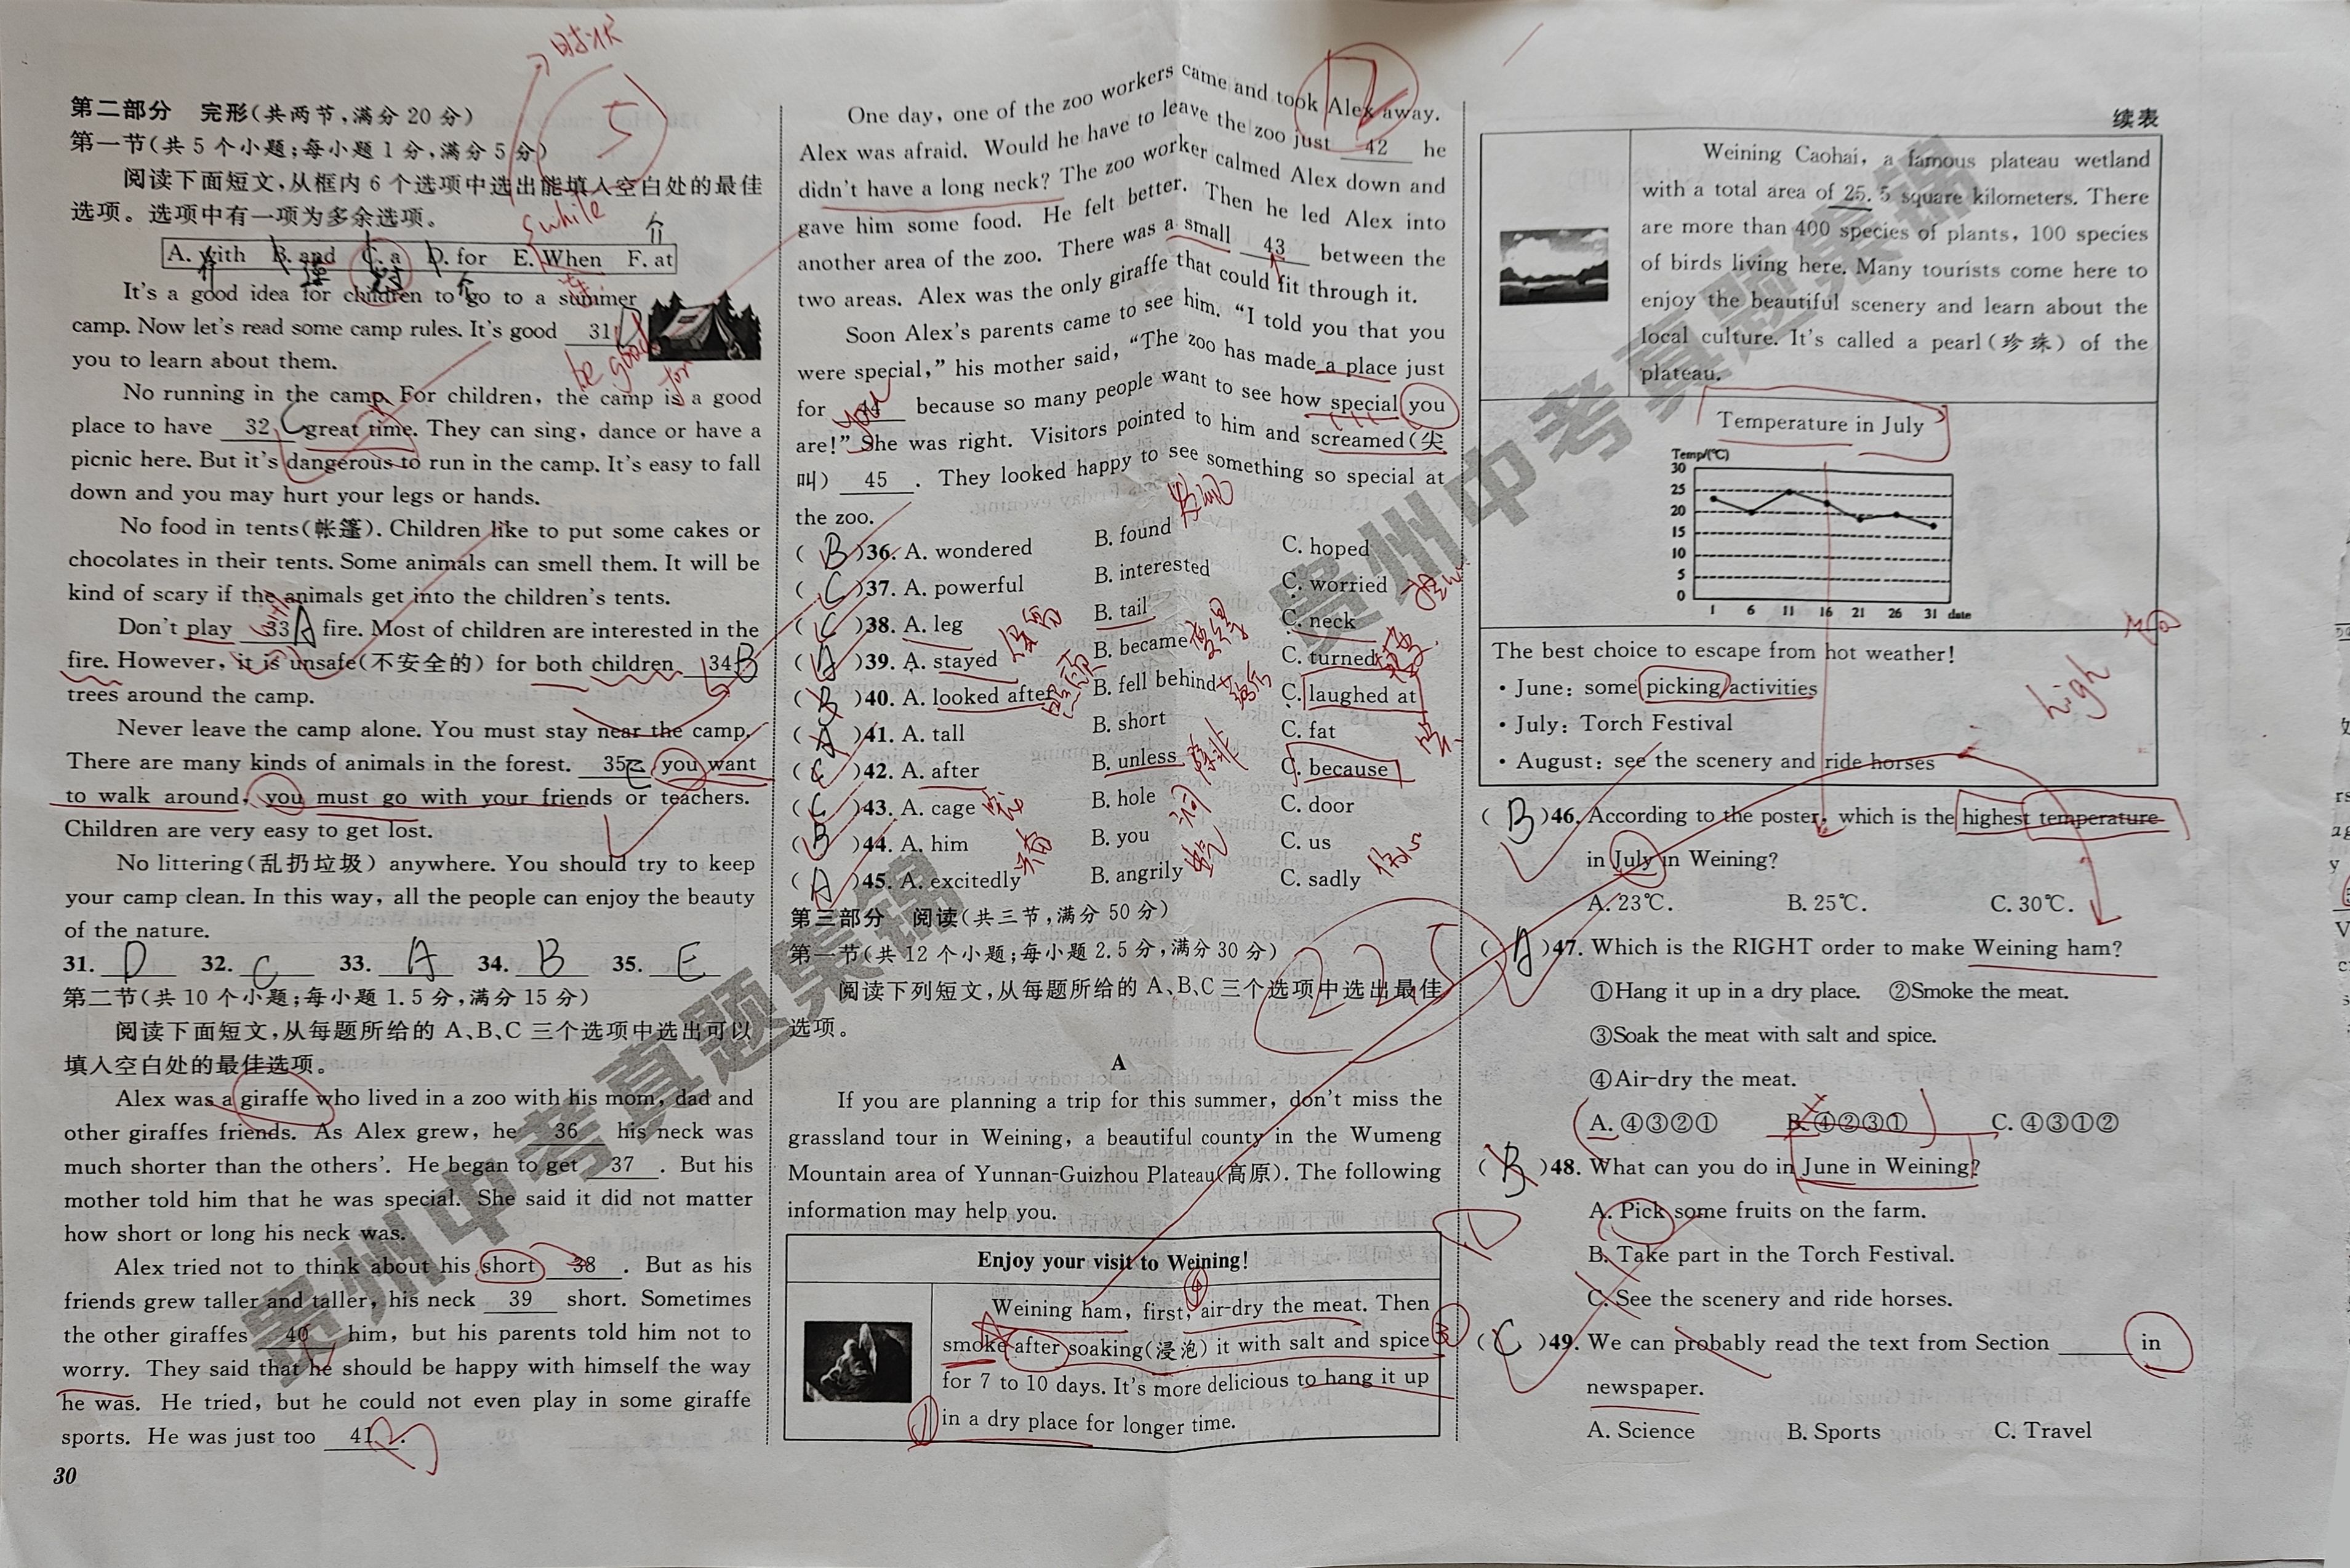 第二部分 完形(共两节,满分20分)
第一节(共5个小题;每小题1分,满分5分)
阅读下面短文,从框内6个选项中选出能填入空白处的最佳
选项。选项中有一项为多余选项。
A. with B. and C. a D. for E. When F. at
It's a good idea for children to go to a summer
camp. Now let's read some camp rules. It's good 31 D
you to learn about them.
No running in the camp. For children, the camp is a good
place to have 32 C great time. They can sing, dance or have a
picnic here. But it's dangerous to run in the camp. It's easy to fall
down and you may hurt your legs or hands.
No food in tents(帐篷). Children like to put some cakes or
chocolates in their tents. Some animals can smell them. It will be
kind of scary if the animals get into the children's tents.
Don't play 33 A fire. Most of children are interested in the
fire. However, it is unsafe(不安全的) for both children 34 B
trees around the camp.
Never leave the camp alone. You must stay near the camp.
There are many kinds of animals in the forest. 35 E you want
to walk around, you must go with your friends or teachers.
Children are very easy to get lost.
No littering(乱扔垃圾) anywhere. You should try to keep
your camp clean. In this way, all the people can enjoy the beauty
of the nature.
31. D 32. C 33. A 34. B 35. E
第二节(共10个小题;每小题1.5分,满分15分)
阅读下面短文,从每题所给的A、B、C三个选项中选出可以
填入空白处的最佳选项。
Alex was a giraffe who lived in a zoo with his mom, dad and
other giraffes friends. As Alex grew, he 36 his neck was
much shorter than the others'. He began to get 37 . But his
mother told him that he was special. She said it did not matter
how short or long his neck was.
Alex tried not to think about his short 38 . But as his
friends grew taller and taller, his neck 39 short. Sometimes
the other giraffes 40 him, but his parents told him not to
worry. They said that he should be happy with himself the way
he was. He tried, but he could not even play in some giraffe
sports. He was just too 41 .
30
时状
5
while
介
be good for
12
One day, one of the zoo workers came and took Alex away.
Alex was afraid. Would he have to leave the zoo just 42 he
didn't have a long neck? The zoo worker calmed Alex down and
gave him some food. He felt better. Then he led Alex into
another area of the zoo. There was a small 43 between the
two areas. Alex was the only giraffe that could fit through it.
Soon Alex's parents came to see him. "I told you that you
were special," his mother said, "The zoo has made a place just
for 44 you because so many people want to see how special you
are!" She was right. Visitors pointed to him and screamed(尖
叫) 45 . They looked happy to see something so special at
the zoo.
( B )36. A. wondered B. found 发现 C. hoped
( C )37. A. powerful B. interested C. worried
( C )38. A. leg B. tail C. neck
( A )39. A. stayed B. became C. turned
( B )40. A. looked after B. fell behind C. laughed at
( A )41. A. tall B. short C. fat
( C )42. A. after B. unless 除非 C. because
( C )43. A. cage B. hole 洞 C. door
( B )44. A. him B. you C. us
( A )45. A. excitedly B. angrily C. sadly
第三部分 阅读(共三节,满分50分)
第一节(共12个小题;每小题2.5分,满分30分)
22.5
阅读下列短文,从每题所给的A、B、C三个选项中选出最佳
选项。
A
If you are planning a trip for this summer, don't miss the
grassland tour in Weining, a beautiful county in the Wumeng
Mountain area of Yunnan-Guizhou Plateau(高原). The following
information may help you.
Enjoy your visit to Weining!
Weining ham, first, air-dry the meat. Then
smoke after soaking(浸泡) it with salt and spice
for 7 to 10 days. It's more delicious to hang it up
in a dry place for longer time.
④
③
①
续表
Weining Caohai, a famous plateau wetland
with a total area of 25.5 square kilometers. There
are more than 400 species of plants, 100 species
of birds living here. Many tourists come here to
enjoy the beautiful scenery and learn about the
local culture. It's called a pearl(珍珠) of the
plateau.
Temperature in July
Temp/(℃)
30
25
20
15
10
5
0
1 6 11 16 21 26 31 date
The best choice to escape from hot weather!
• June: some picking activities
• July: Torch Festival
• August: see the scenery and ride horses
high 高
( B )46. According to the poster, which is the highest temperature
in July in Weining?
A. 23℃. B. 25℃. C. 30℃.
( A )47. Which is the RIGHT order to make Weining ham?
①Hang it up in a dry place. ②Smoke the meat.
③Soak the meat with salt and spice.
④Air-dry the meat.
A. ④③②① B. ④②③① C. ④③①②
( B )48. What can you do in June in Weining?
A. Pick some fruits on the farm.
B. Take part in the Torch Festival.
C. See the scenery and ride horses.
( C )49. We can probably read the text from Section in
newspaper.
A. Science B. Sports C. Travel
贵州中考真题集锦
贵州中考真题集锦